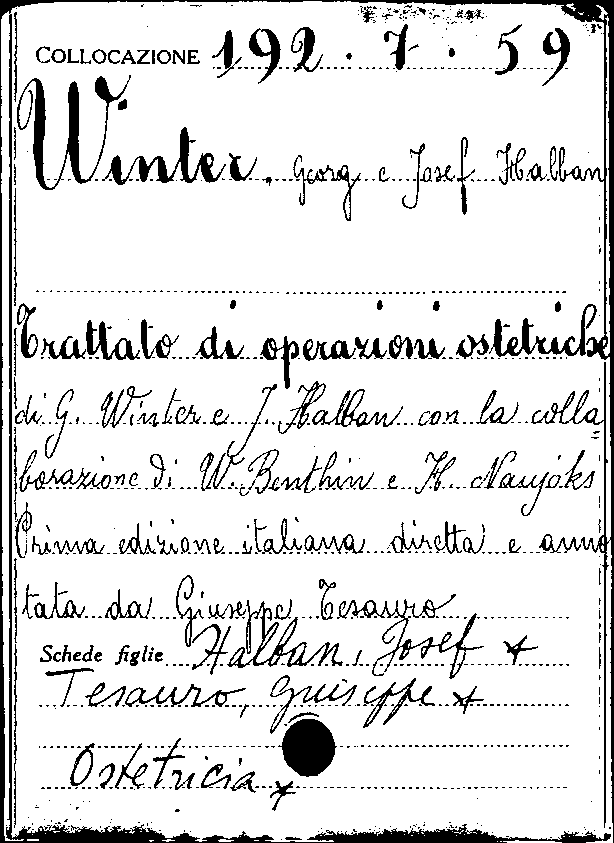 COLLOCAZIONE 192.7.59
Winter, Georg e Josef Halban
Trattato di operazioni ostetriche
di G. Winter e J. Halban con la colla=
borazione di W. Benthin e H. Naujoks
Prima edizione italiana diretta e anno
tata da Giuseppe Tesauro
Schede figlie Halban, Josef *
Tesauro, Guiseppe *
Ostetricia *